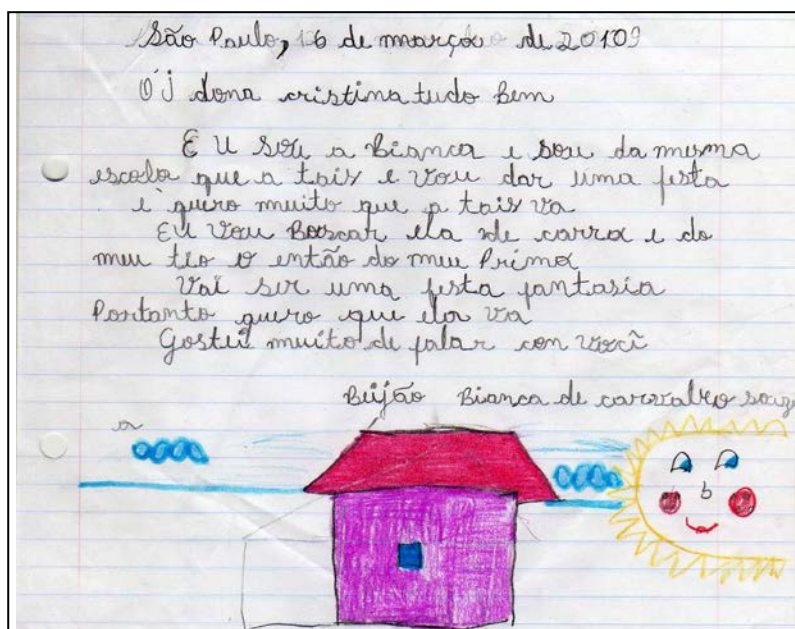 São Paulo, 16 de março de 2010
Oi dona cristina tudo Bem
Eu sou a Bianca e sou da mesma
escola que a tais e vou dar uma festa
e quero muito que a tais va
Eu vou Boscar ela de carro e do
meu tio o então do meu Primo
Vai ser uma festa fantasia
Portanto quero que ela va
Gostei muito de falar con você
Beijão Bianca de carvalho souza